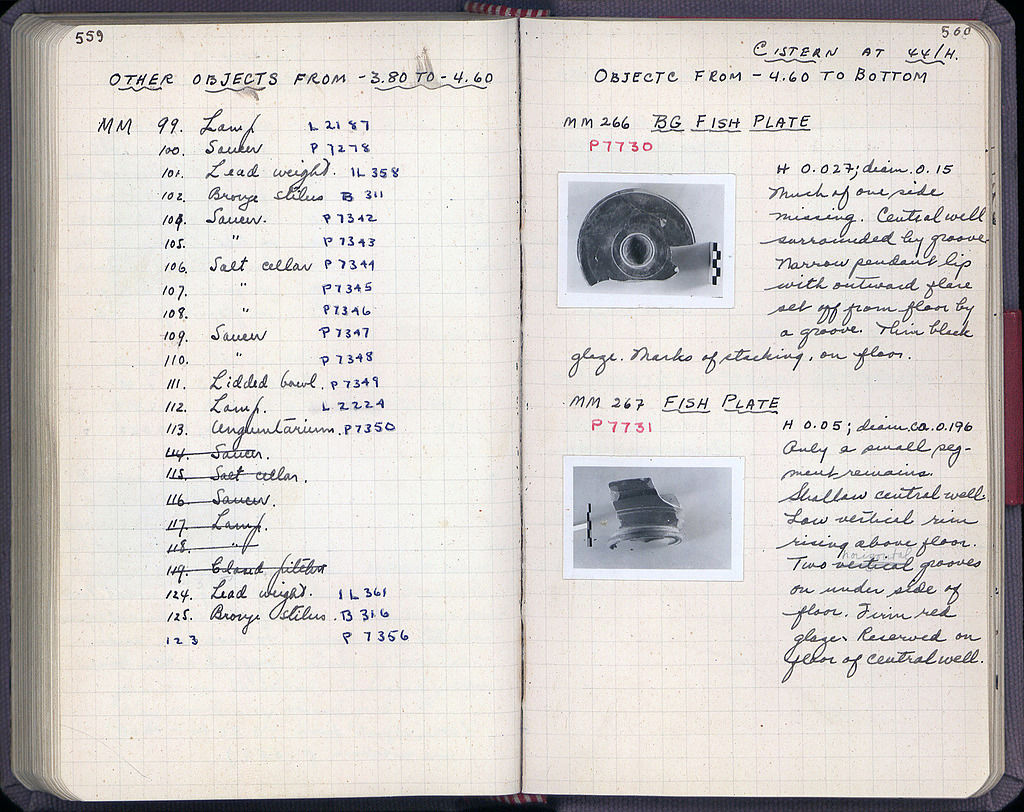 559
OTHER OBJECTS FROM -3.80 TO -4.60
MM 99. Lamp L 2187
100. Saucer P 7278
101. Lead weight. IL 358
102. Bronze stilus B 311
104. Saucer. P 7342
105. " P 7343
106. Salt cellar P 7344
107. " P 7345
108. " P 7346
109. Saucer P 7347
110. " P 7348
111. Lidded bowl. P 7349
112. Lamp. L 2224
113. Unguntarium. P 7350
114. Saucer.
115. Salt cellar.
116. Saucer.
117. Lamp.
118. "
119. Closed pitcher
124. Lead weight. IL 361
125. Bronze stilus. B 316
123 P 7356
560
CISTERN AT 44/H.
OBJECTC FROM -4.60 TO BOTTOM
MM 266 BG FISH PLATE
P7730
H 0.027; diam. 0.15
Much of one side
missing. Central well
surrounded by groove.
Narrow pendant lip
with outward flare
set off from floor by
a groove. Thin black
glaze. Marks of stacking, on floor.
MM 267 FISH PLATE
P7731
H 0.05; diam. ca. 0.196
Only a small seg-
ment remains.
Shallow central well.
Low vertical rim
rising above floor.
horizontal
Two vertical grooves
on under side of
floor. Firm red
glaze. Reserved on
floor of central well.